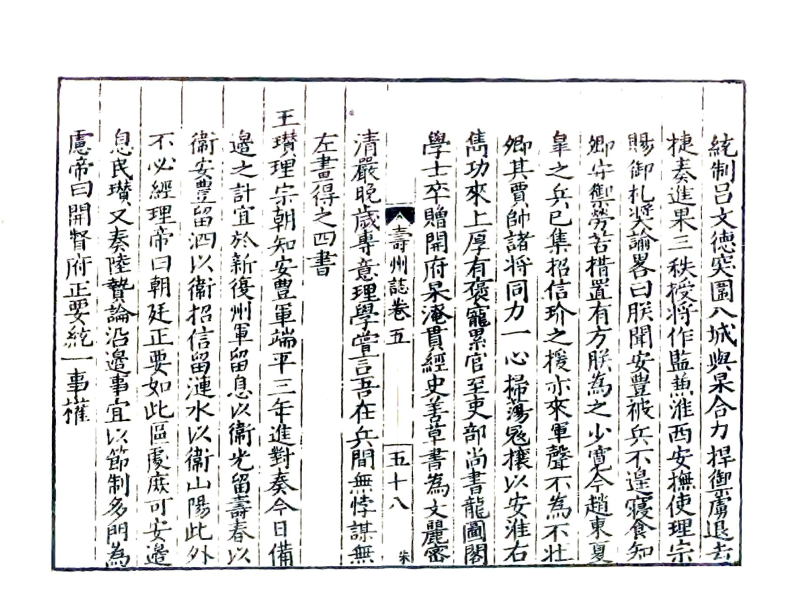 統制吕文德突圍入城與杲合力捍御虜退去
捷奏進果三秩授將作監兼淮西安撫使理宗
賜御札奬諭畧曰朕聞安豐被兵不遑寢食知
卿守禦勞苦措置有方朕為之少寬今趙東夏
皐之兵已集招信玠之援亦來軍聲不為不壯
卿其賈帥諸将同力一心掃蕩冦攘以安淮右
雋功來上厚有褒寵累官至吏部尚書龍圖閣
學士卒贈開府杲淹貫經史善草書為文麗密
壽州誌卷五
五十八
朱
清嚴晩歲專意理學嘗言吾在兵間無悖謀無
左畫得之四書
王瓉理宗朝知安豐軍端平三年進對奏今日備
邉之計宜於新復州軍留息以衞光留壽春以
衞安豐留泗以衞招信留漣水以衞山陽此外
不必經理帝曰朝廷正要如此區處庶可安邉
息民瓉又奏陸贄論沿邉事宜以節制多門為
慮帝曰開督府正要統一事權